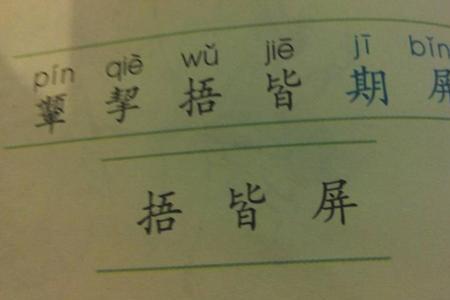 pín qiè wǔ jiē jī bǐn
颦 挈 捂 皆 期 屏
捂 皆 屏